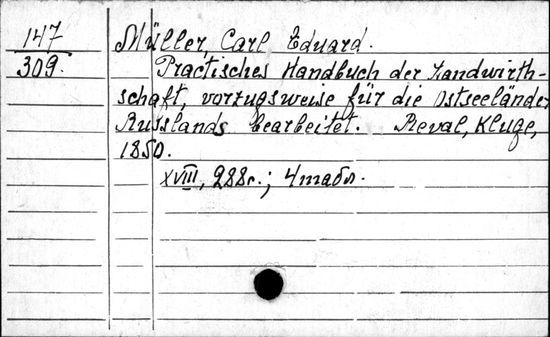 147
309.
Müller, Carl Eduard.
Practisches Handbuch der Landwirth-
schaft, vorzugsweise für die Ostseeländer
Russlands bearbeitet. Reval, Kluge,
1850.
XVIII, 288с.; 4 табл.